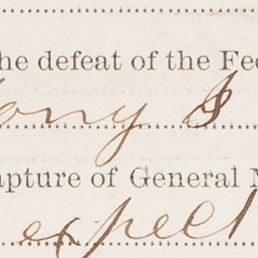 he defeat of the Fe
ony I
apture of General M
expect